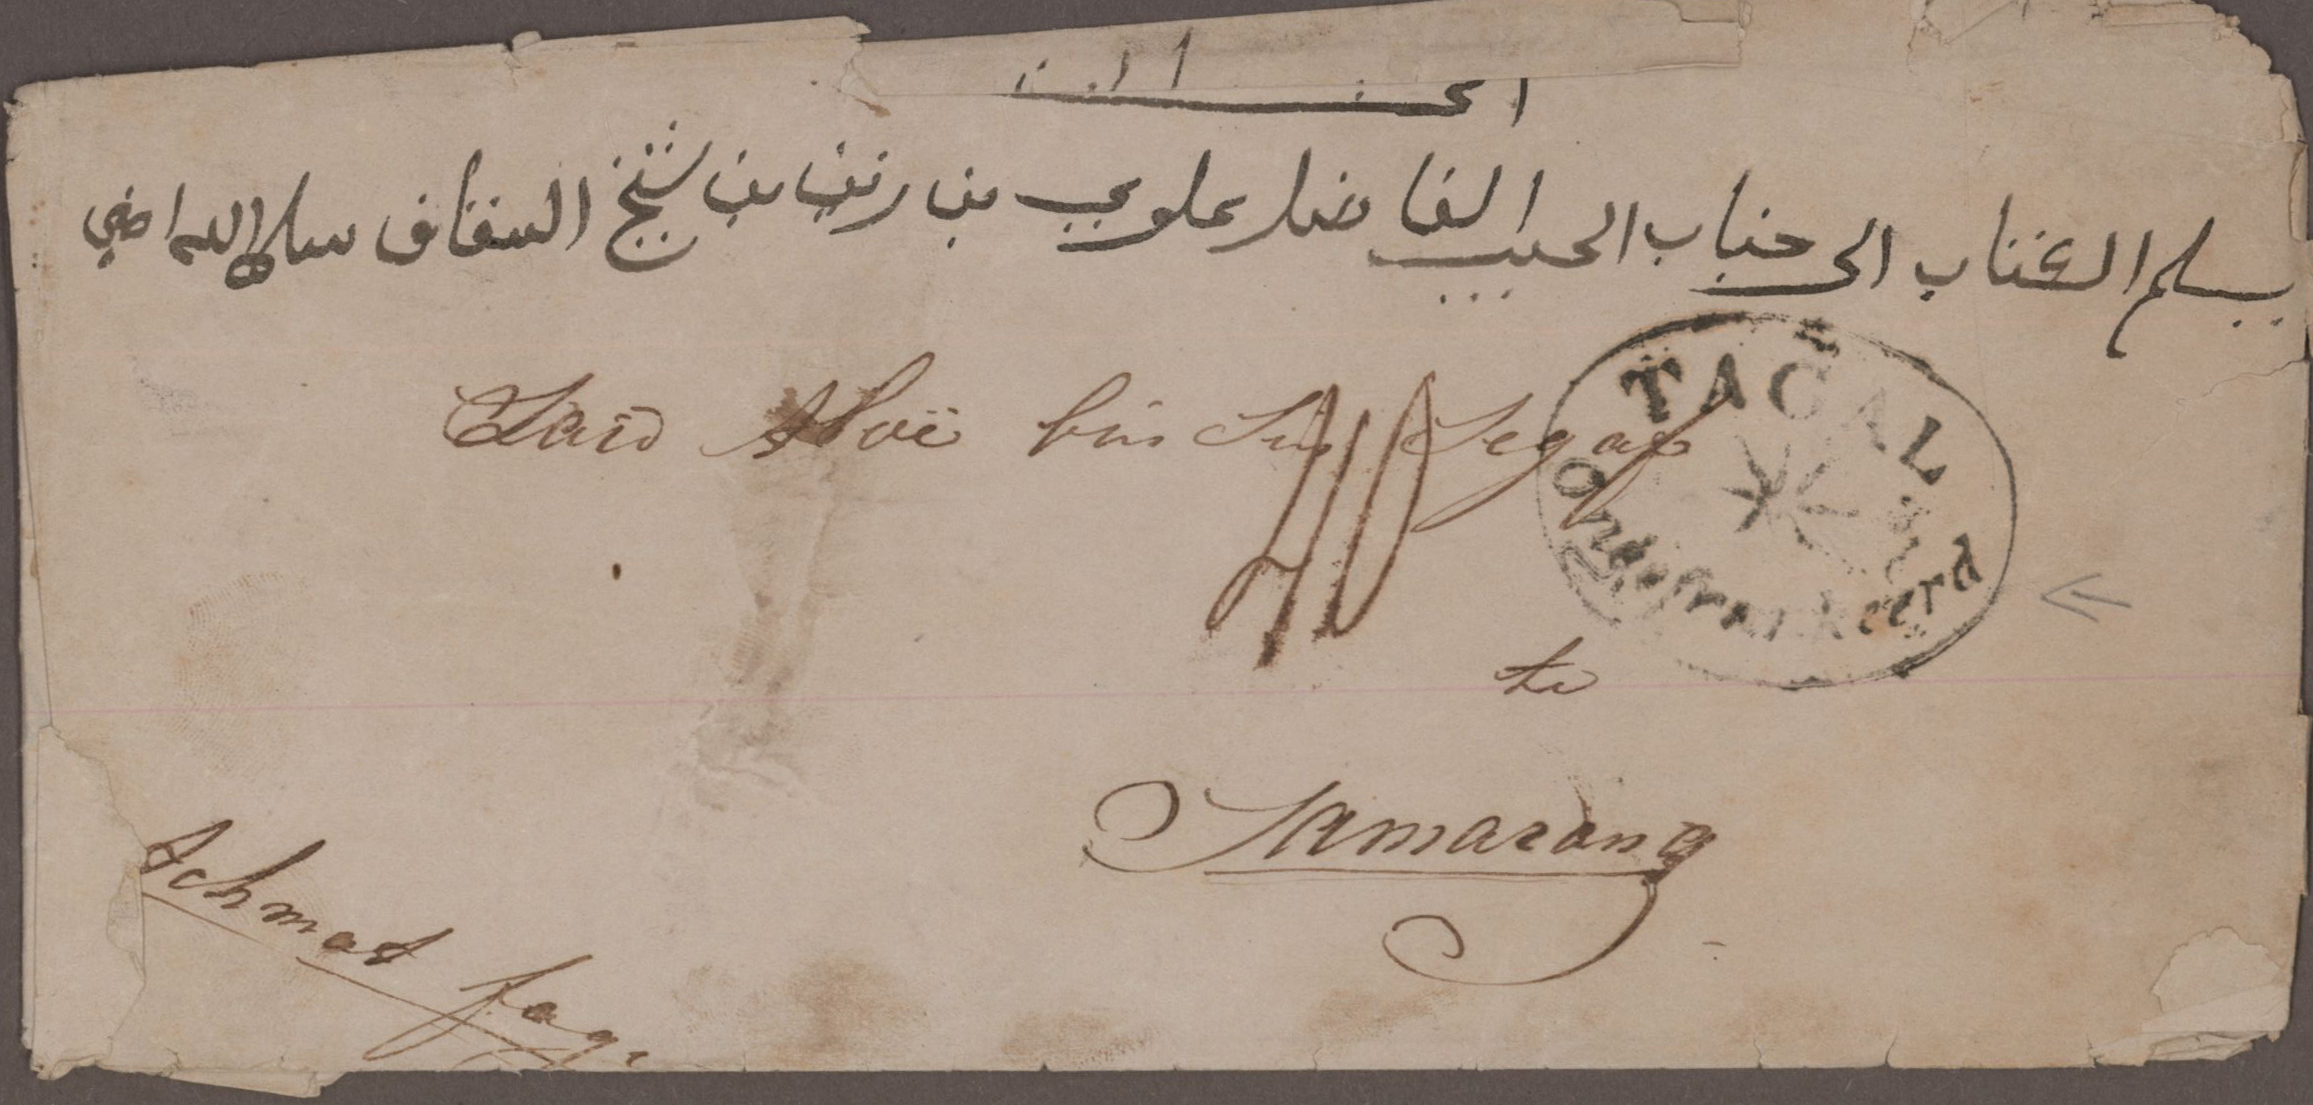 يسلم الكتاب الى جناب الحبيب الفاضل علوي بن زين بن شيخ السقاف سلمه الله امين
Said Aloë bin Sin Segaf
TAGAL
Ongefrankeerd
te
Samarang
Achmat